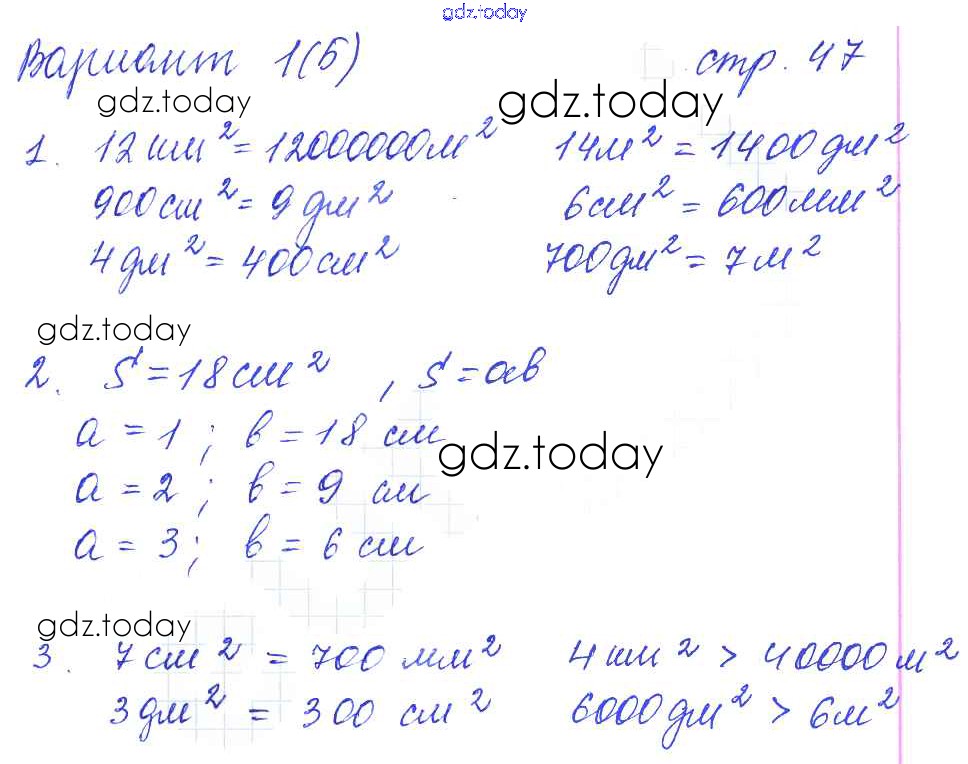 gdz.today
Вариант 1(б) стр. 47
gdz.today gdz.today
1. 12 км² = 12000000м² 14м² = 1400 дм²
900 см² = 9 дм² 6см² = 600мм²
4 дм² = 400см² 700дм² = 7 м²
gdz.today
2. S = 18 см² , S = ab
a = 1 ; b = 18 см
gdz.today
a = 2 ; b = 9 см
a = 3 ; b = 6 см
gdz.today
3. 7 см² = 700 мм² 4 км² > 40000 м²
3 дм² = 300 см² 6000 дм² > 6 м²